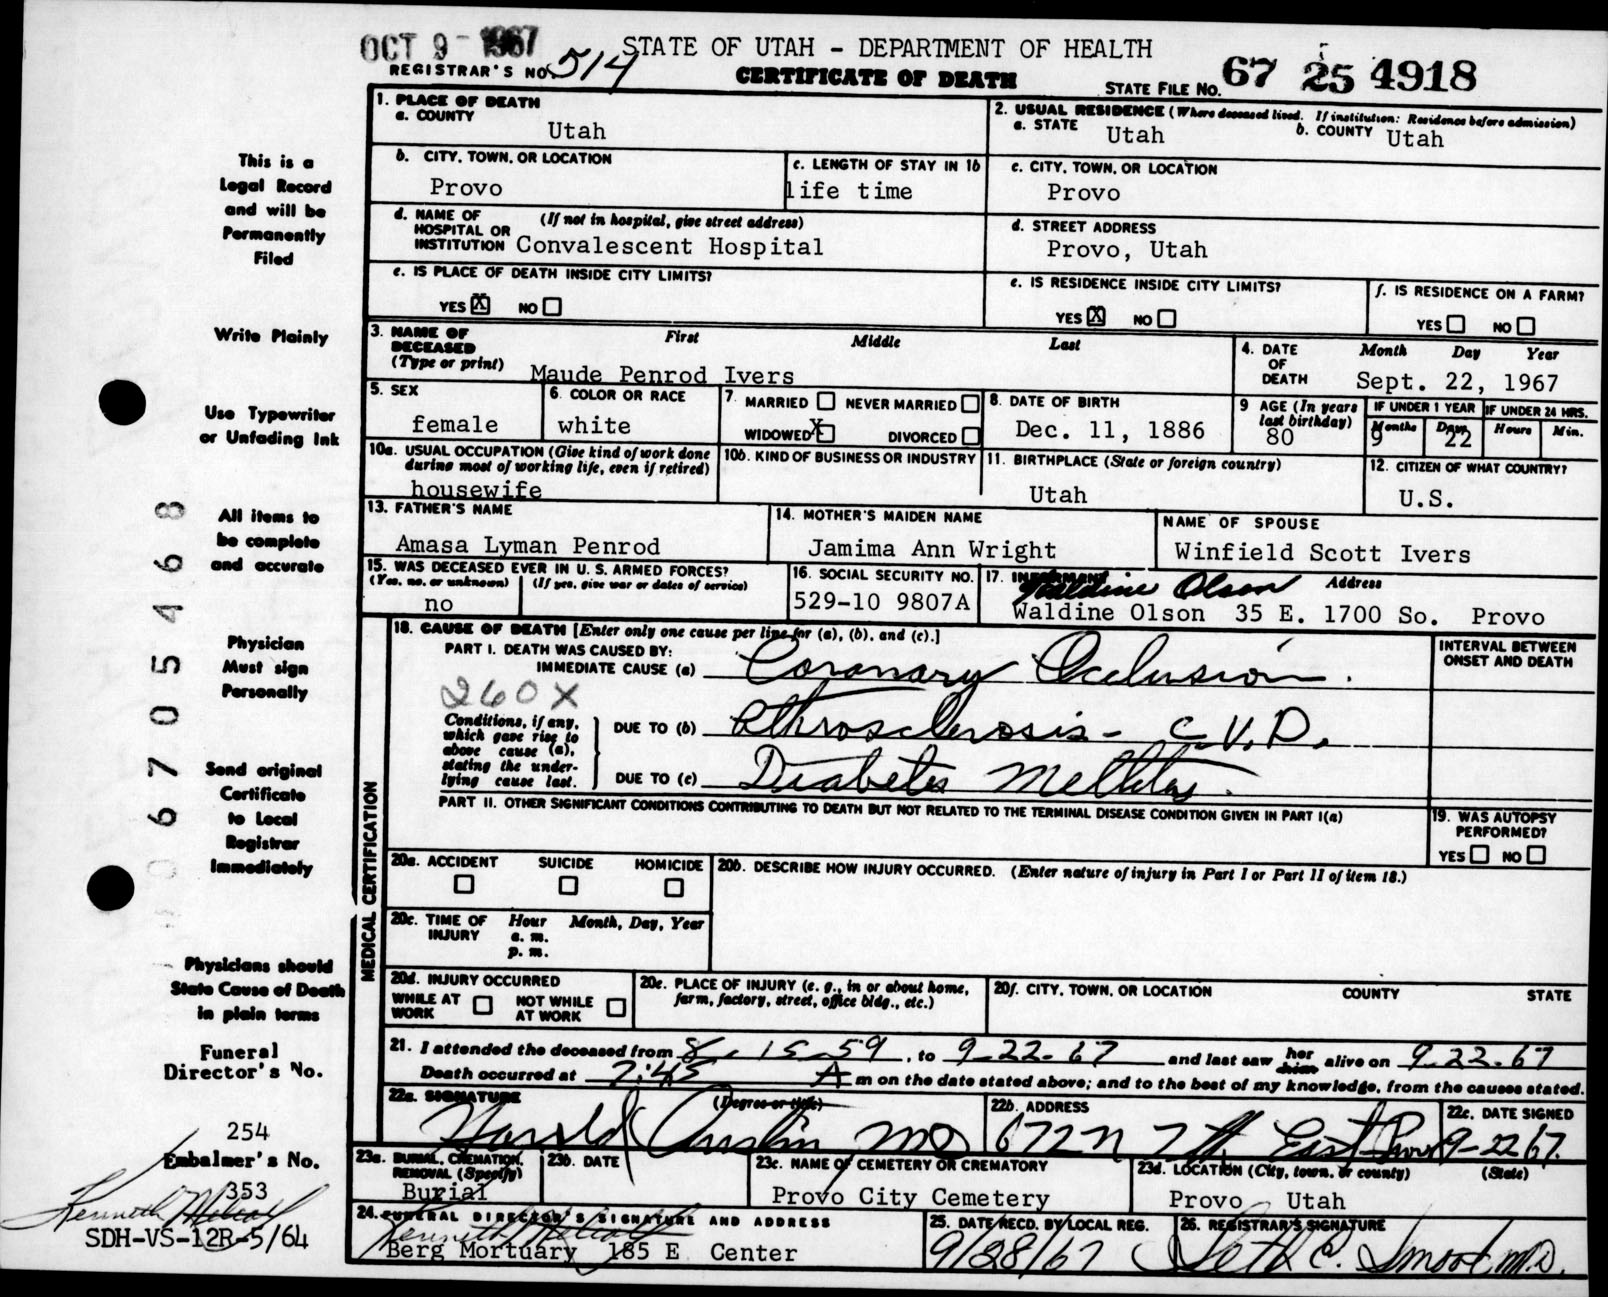 OCT 9 - 1967
STATE OF UTAH - DEPARTMENT OF HEALTH
REGISTRAR'S NO. 514
CERTIFICATE OF DEATH
STATE FILE NO. 67 25 4918
This is a
Legal Record
and will be
Permanently
Filed
Write Plainly
Use Typewriter
or Unfading Ink
All items to
be complete
and accurate
Physician
Must sign
Personally
Send original
Certificate
to Local
Registrar
Immediately
Physicians should
State Cause of Death
in plain terms
Funeral
Director's No.
254
Embalmer's No.
353
Kenneth Metcalf
SDH-VS-12R-5/64
6705468
1. PLACE OF DEATH
a. COUNTY
Utah
2. USUAL RESIDENCE (Where deceased lived. If institution: Residence before admission)
a. STATE Utah b. COUNTY Utah
b. CITY, TOWN, OR LOCATION
Provo
c. LENGTH OF STAY IN 1b
life time
c. CITY, TOWN, OR LOCATION
Provo
d. NAME OF HOSPITAL OR INSTITUTION (If not in hospital, give street address)
Convalescent Hospital
d. STREET ADDRESS
Provo, Utah
e. IS PLACE OF DEATH INSIDE CITY LIMITS?
YES X NO
e. IS RESIDENCE INSIDE CITY LIMITS?
YES X NO
f. IS RESIDENCE ON A FARM?
YES NO
3. NAME OF DECEASED (Type or print)
First Middle Last
Maude Penrod Ivers
4. DATE OF DEATH
Month Day Year
Sept. 22, 1967
5. SEX
female
6. COLOR OR RACE
white
7. MARRIED NEVER MARRIED
WIDOWED X DIVORCED
8. DATE OF BIRTH
Dec. 11, 1886
9 AGE (In years last birthday)
80
IF UNDER 1 YEAR
Months Days
9 22
IF UNDER 24 HRS.
Hours Min.
10a. USUAL OCCUPATION (Give kind of work done during most of working life, even if retired)
housewife
10b. KIND OF BUSINESS OR INDUSTRY
11. BIRTHPLACE (State or foreign country)
Utah
12. CITIZEN OF WHAT COUNTRY?
U.S.
13. FATHER'S NAME
Amasa Lyman Penrod
14. MOTHER'S MAIDEN NAME
Jamima Ann Wright
NAME OF SPOUSE
Winfield Scott Ivers
15. WAS DECEASED EVER IN U. S. ARMED FORCES?
(Yes, no, or unknown) (If yes, give war or dates of service)
no
16. SOCIAL SECURITY NO.
529-10 9807A
17. INFORMANT Waldine Olson Address
Waldine Olson 35 E. 1700 So. Provo
MEDICAL CERTIFICATION
18. CAUSE OF DEATH [Enter only one cause per line for (a), (b), and (c).]
INTERVAL BETWEEN ONSET AND DEATH
PART I. DEATH WAS CAUSED BY:
IMMEDIATE CAUSE (a) Coronary Occlusion.
260X
Conditions, if any, which gave rise to above cause (a), stating the underlying cause last.
DUE TO (b) Athrosclerosis - C.V.D.
DUE TO (c) Diabetes Mellitus.
PART II. OTHER SIGNIFICANT CONDITIONS CONTRIBUTING TO DEATH BUT NOT RELATED TO THE TERMINAL DISEASE CONDITION GIVEN IN PART I(a)
19. WAS AUTOPSY PERFORMED?
YES NO
20a. ACCIDENT SUICIDE HOMICIDE
20b. DESCRIBE HOW INJURY OCCURRED. (Enter nature of injury in Part I or Part II of item 18.)
20c. TIME OF INJURY
Hour Month, Day, Year
a. m.
p. m.
20d. INJURY OCCURRED
WHILE AT WORK NOT WHILE AT WORK
20e. PLACE OF INJURY (e. g., in or about home, farm, factory, street, office bldg., etc.)
20f. CITY, TOWN, OR LOCATION COUNTY STATE
21. I attended the deceased from 8-15-59, to 9-22-67 and last saw her him alive on 9-22-67
Death occurred at 2:45 A m on the date stated above; and to the best of my knowledge, from the causes stated.
22a. SIGNATURE (Degree or title)
Harold Austin MD
22b. ADDRESS
672 N 7th East Provo
22c. DATE SIGNED
9-22-67.
23a. BURIAL, CREMATION, REMOVAL (Specify)
Burial
23b. DATE
23c. NAME OF CEMETERY OR CREMATORY
Provo City Cemetery
23d. LOCATION (City, town, or county) (State)
Provo Utah
24. FUNERAL DIRECTOR'S SIGNATURE AND ADDRESS
Kenneth Metcalf
Berg Mortuary 185 E Center
25. DATE RECD. BY LOCAL REG.
9/28/67
26. REGISTRAR'S SIGNATURE
Seth E. Smoot M.D.